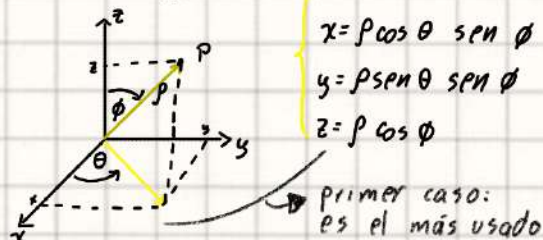 z
z
P
ρ
ϕ
θ
y
y
x
x
x = ρ cos θ sen ϕ
y = ρ sen θ sen ϕ
z = ρ cos ϕ
primer caso:
es el más usado